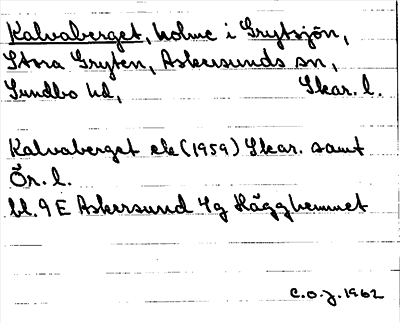 Kalvaberget, holme i Grytsjön,
Stora Gryten, Askersunds sn,
Sundbo hd, Skar. l.
Kalvaberget ek (1959) Skar. samt
Ör. l.
bl. 9 E Askersund 4g Hägghemmet
C.O.J. 1962